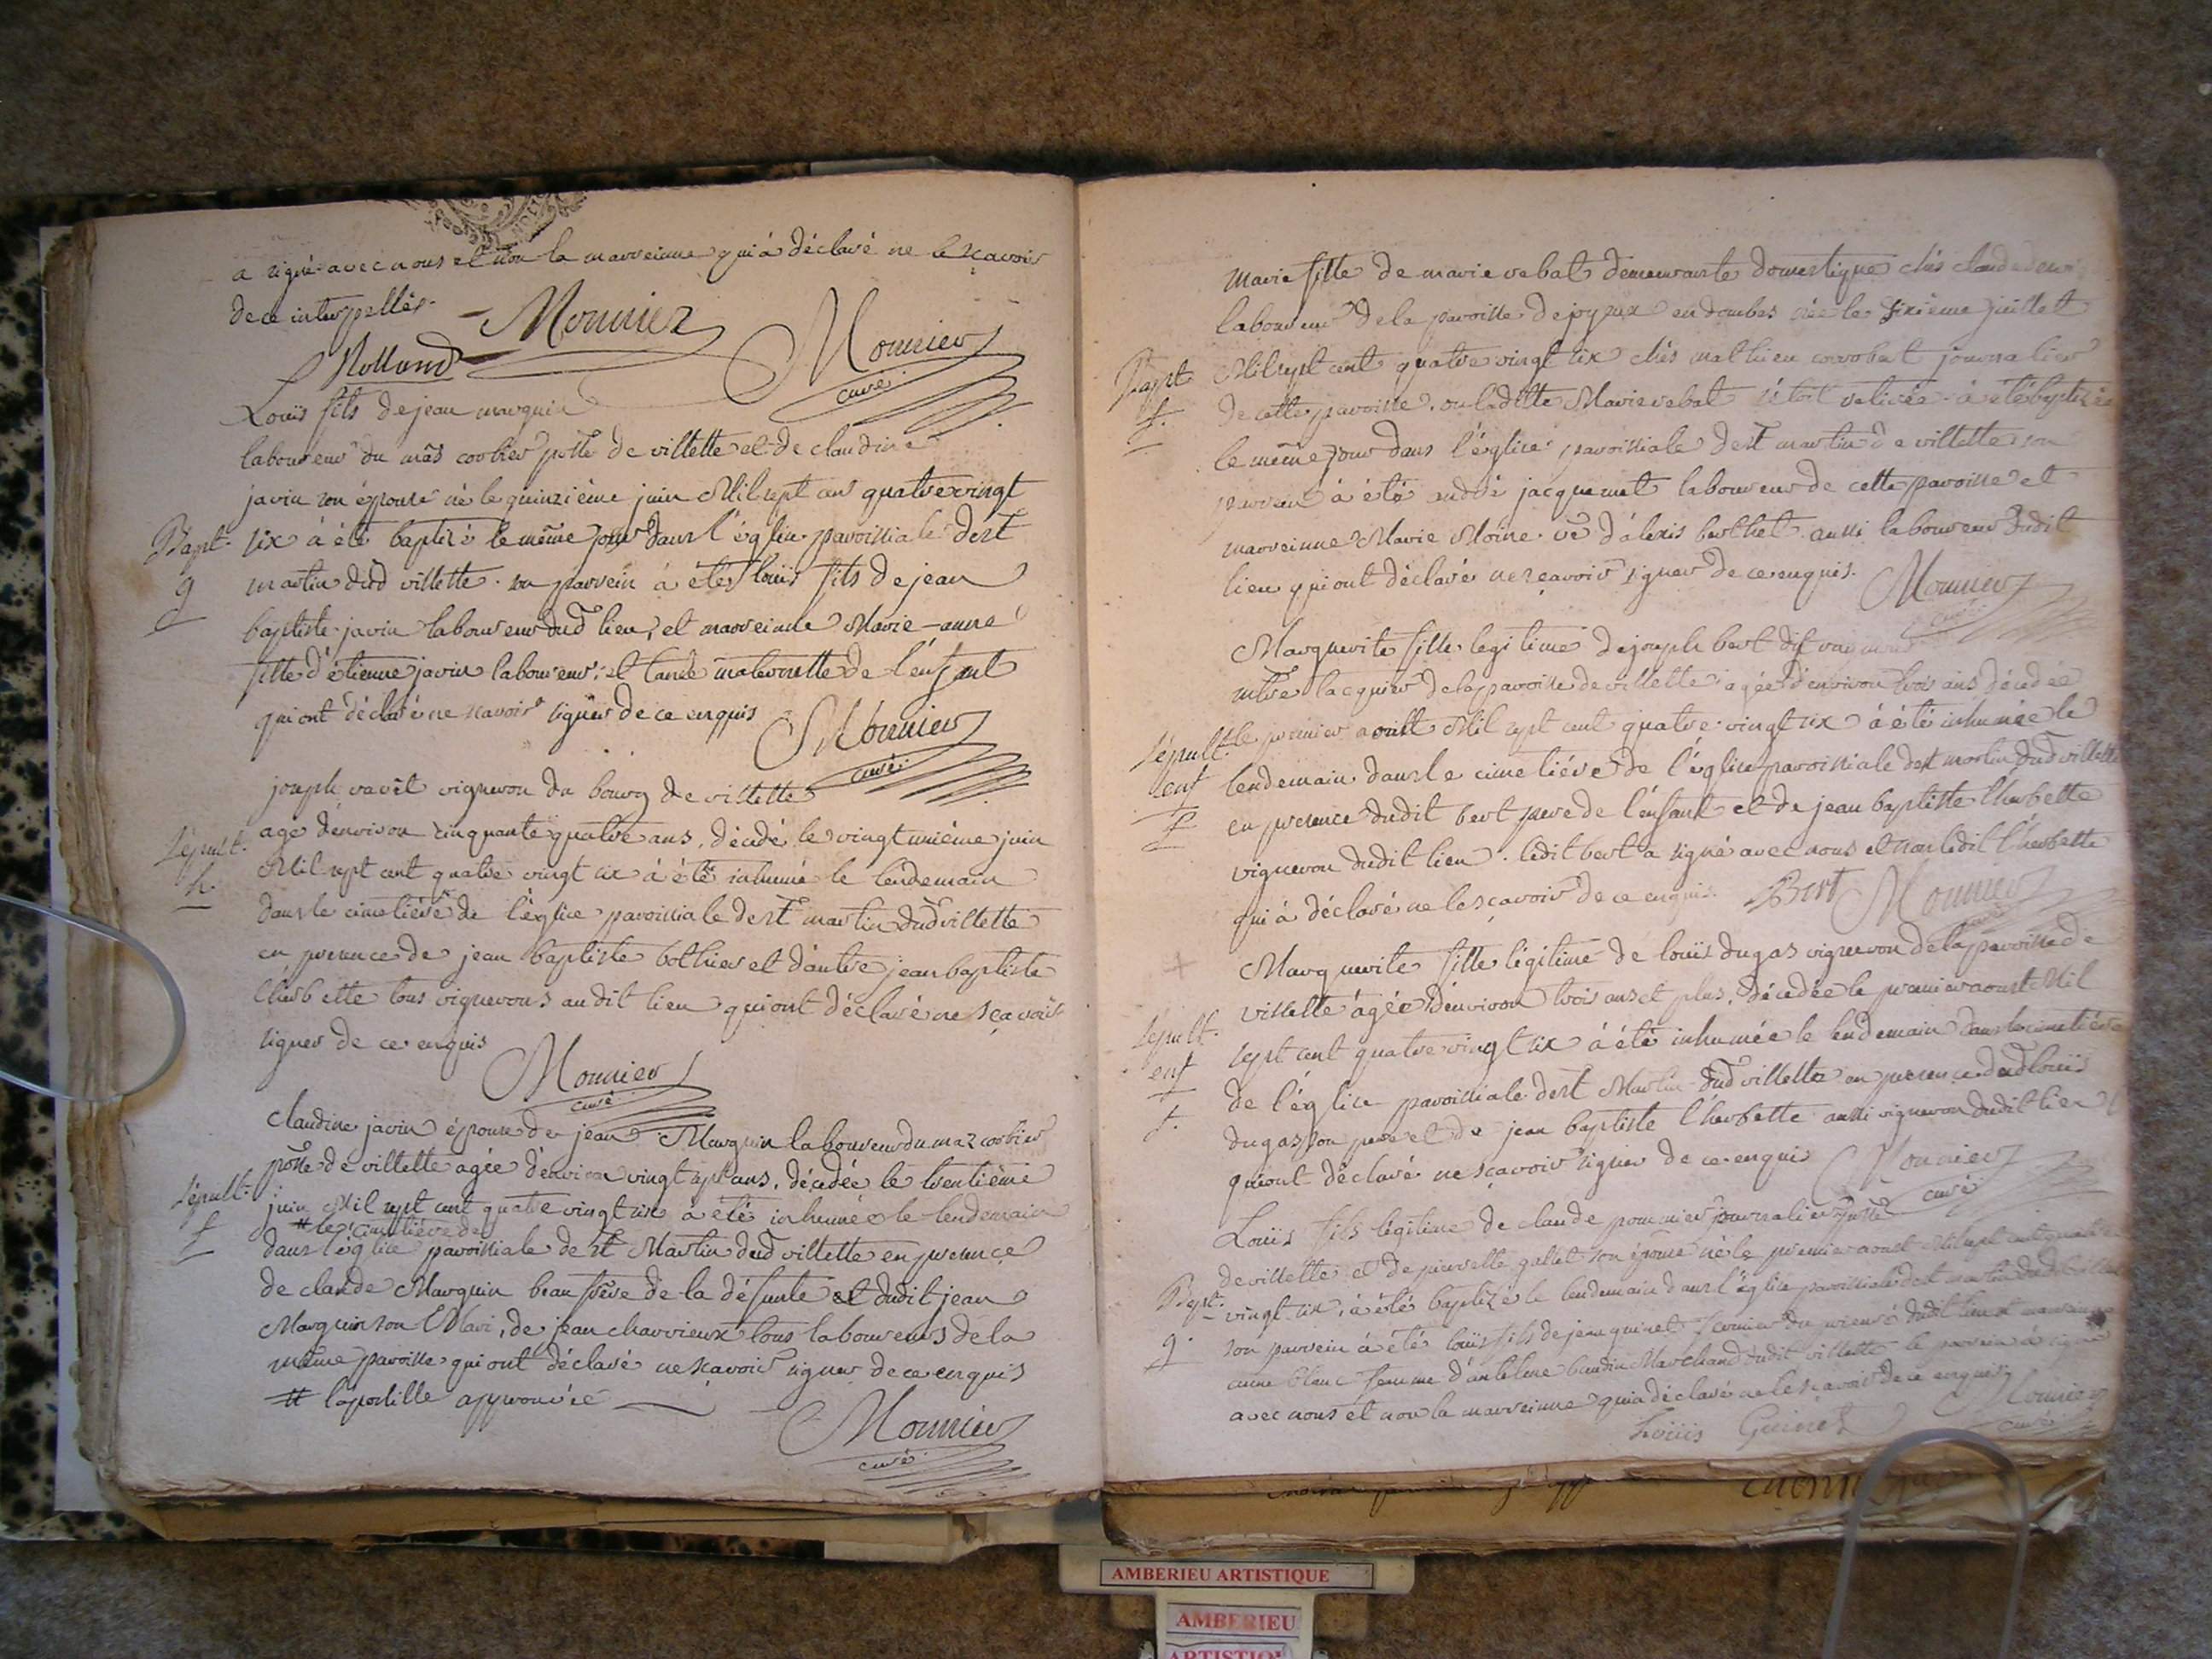 a signé avec nous et non la marreinne qui à déclaré ne le sçavoir
de ce interpellés.
Monnier
Rolland
Monnier
curé
Louis fils de jean marguin
laboureur du mâs corbier psse de villette et de claudine
javin son épouse né le quinzième juin Mil sept cent quatre vingt
Bapt. six à été baptizé le même jour dans l'église paroissiale de st
g martin dud villette. son parrein à étés louis fils de jean
baptiste javin laboureur dud lieu, et marreinne Marie-anne
fille d'étienne javin laboureur, et tante maternelle de l'enfant
qui ont déclaré ne scavoir signer de ce enquis
Monnier
curé
joseph varêt vigneron du bourg de villette
age d'environ cinquante quatre ans, décédé le vingt unième juin
Sépult. Mil sept cent quatre vingt six à été inhumé le lendemain
h. dans le cimetière de l'église paroissiale de st martin dud villette
en presence de jean baptiste bothier et d'autre jean baptiste
l'herbette tous vignerons au dit lieu qui ont déclaré ne sçavoir
signer de ce enquis
Monnier
curé
claudine javin épouse de jean Marguin laboureur du maz corbier
psse de villette agée d'environ vingt sept ans, décédée le trentième
Sépult. juin Mil sept cent quatre vingt six a été inhumée le lendemain
f # le cimetière de
dans l'église paroissiale de st Martin dud villette en presence
de claude Marguin beau frère de la défunte et dudit jean
Marguin son Mari, de jean charvieux tous laboureurs de la
même paroisse qui ont déclaré ne scavoir signer de ce enquis
# lapostille approuvée
Monnier
curé
Marie fille de marie rebat demeurante domestique chés claude
laboureur de la paroisse de joyeux en dombes née le sixième juillet
Bapt. Mil sept cent quatre vingt six chés mathieu corrobert journalier
f. de cette paroisse, ou laditte Marie rebat s'étoit retirée - à été baptizée
le même jour dans l'église paroissiale de st martin de villette son
parrein à été andré jacquemet laboureur de cette paroisse et
marreinne Marie Moine ve d'alexis berthet aussi laboureur dudit
lieu qui ont déclaré ne sçavoir signer de ce enquis.
Monnier
curé
Marguerite fille legitime de joseph bert dit
mtre tacquier de la paroisse de villette agée d'environ trois ans décédée
Sépult. le premier aoust Mil sept cent quatre-vingt six à été inhumée le
enf lendemain dans le cimetière de l'église paroissiale de st martin dud villette
f en presence dudit bert pere de l'enfant et de jean baptiste l'herbette
vigneron dudit lieu. ledit bert a signé avec nous et non ledit l'herbette
qui à déclaré ne le sçavoir de ce enquis.
Bert
Monnier
curé
Marguerite fille légitime de louis dugas vigneron de la paroisse de
villette âgée d'environ trois ans et plus, décédée le premier aoust Mil
Sépult. sept cent quatre vingt six à été inhumée le lendemain dans le cimetière
enf de l'église paroissiale de st Martin dud villette en presence dud louis
f. dugas son pere et de jean baptiste l'herbette aussi vigneron dudit lieu
qui ont déclaré ne sçavoir signer de ce enquis
Monnier
curé
Louis fils légitime de claude pommier journalier psse
de villette et de pierrette gallet son épouse né le premier aoust Mil sept cent quatre
Bapt. vingt six, à été baptizé le lendemain dans l'église paroissiale de st martin dud villette
g. son parrein à été louis fils de jean guinet fermier du prieuré dudit lieu et marreinne
anne blanc femme d'antelme baudin Marchand dudit villette le parrein à signé
avec nous et non la marreinne qui a déclaré ne le scavoir de ce enquis
Louis Guinet
Monnier
curé
AMBERIEU ARTISTIQUE
AMBERIEU
ARTISTIQUE